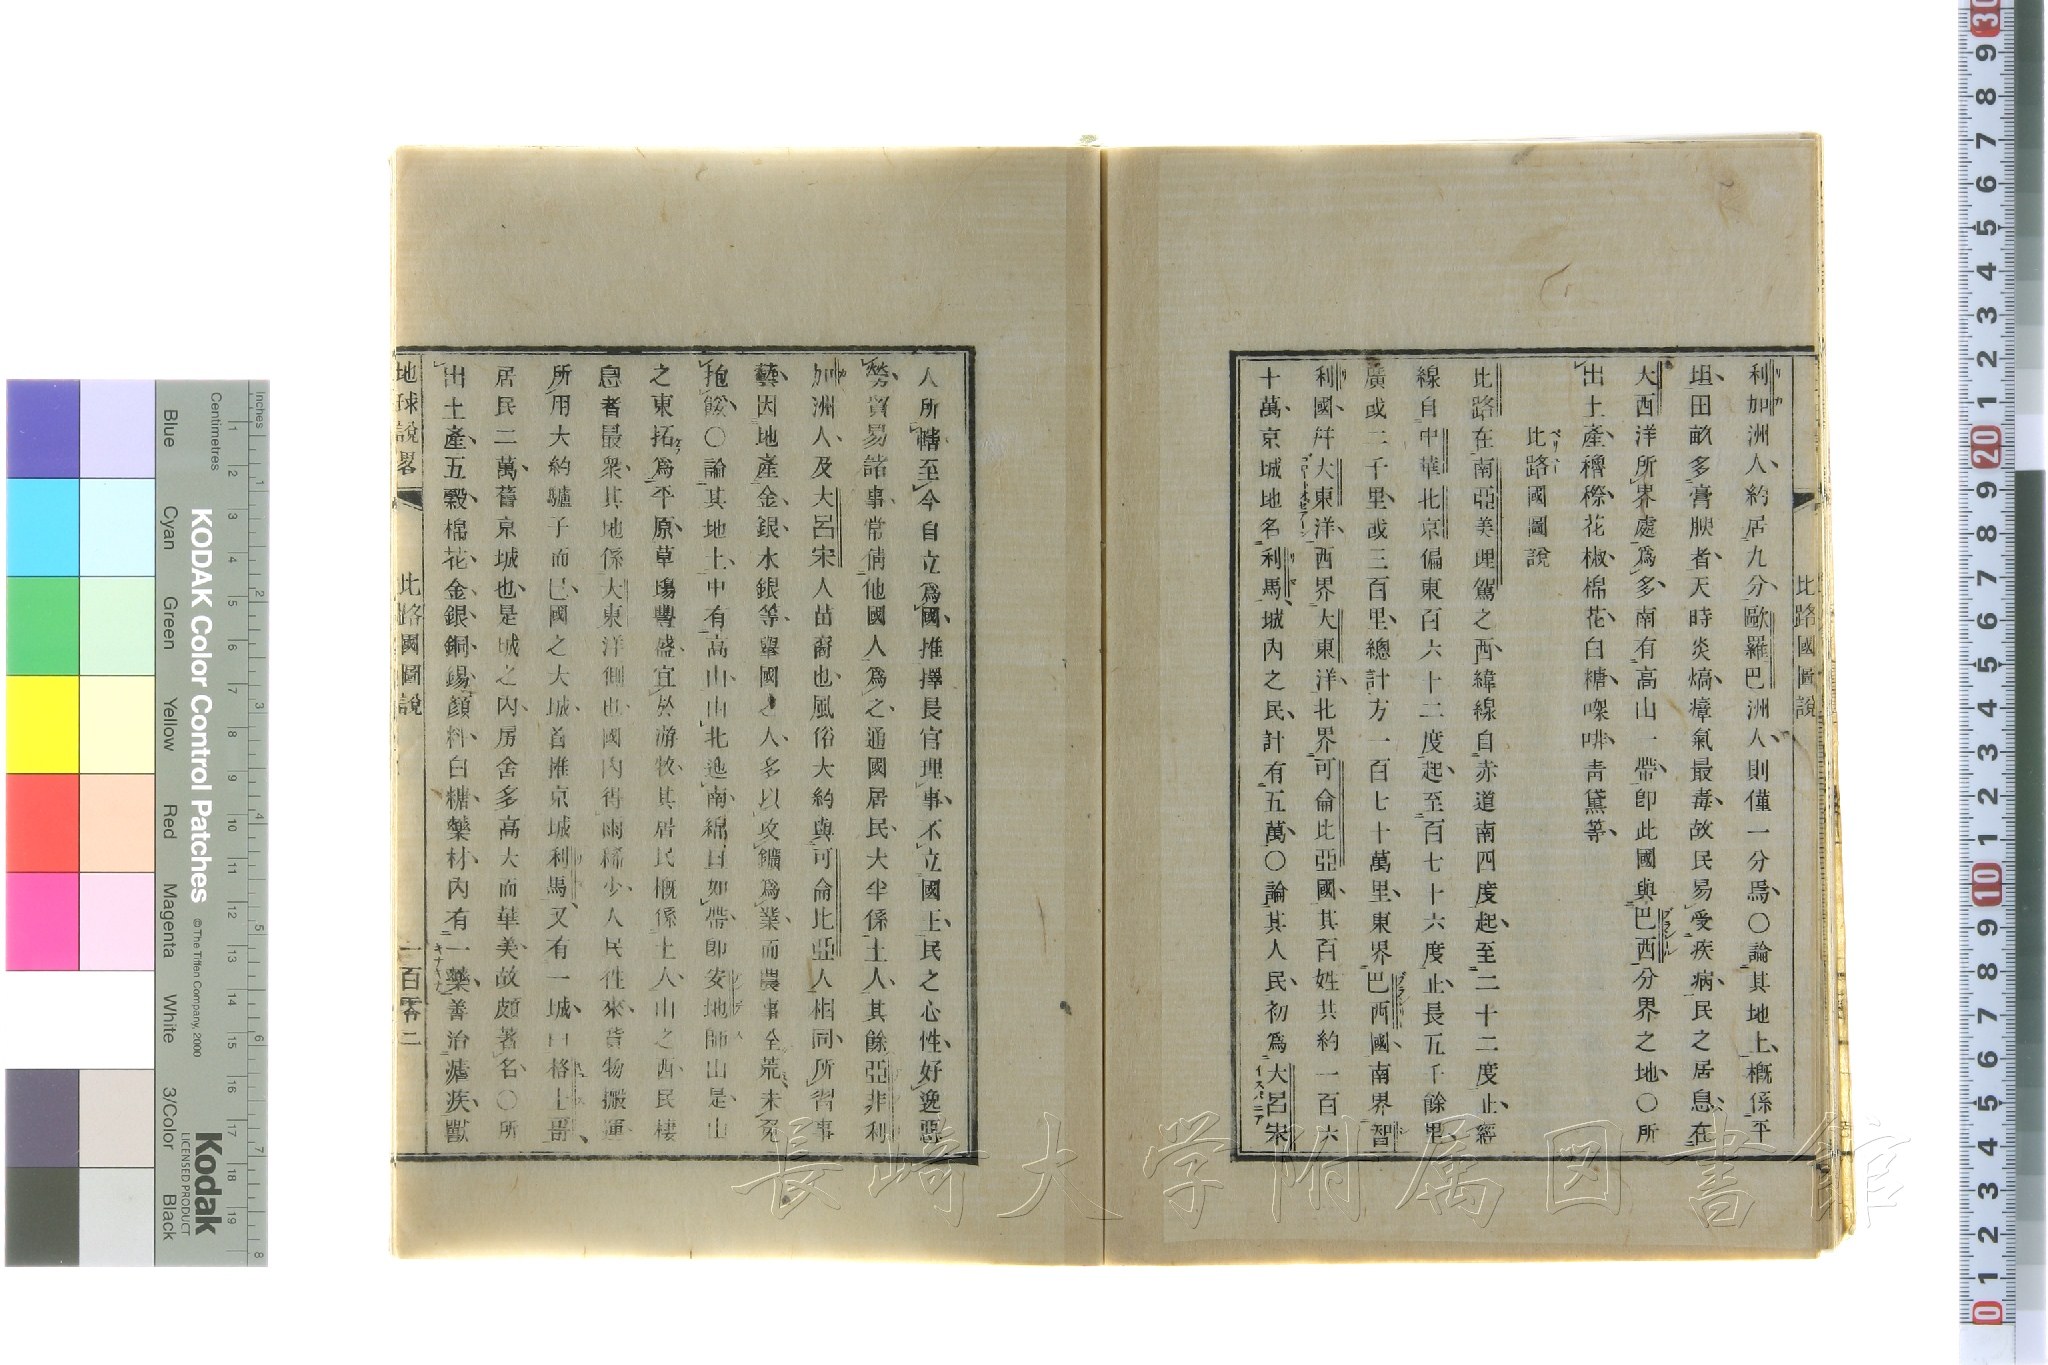 比路國圖說
利加洲人、約居九分、歐羅巴洲人、則僅一分焉、〇論其地土、槪係平
坦、田畝多膏腴者、天時炎熇、瘴氣最毒、故民易受疾病、民之居息、在
大西洋所界處爲多、南有高山一帶、卽此國與巴西分界之地、〇所
出土產、穭穄、花椒、棉花、白糖、㗎啡、靑黛等、
比路國圖說
比路在南亞美理駕之西、緯線自赤道南四度起、至二十二度止、經
線自中華北京偏東百六十二度起、至百七十六度止、長五千餘里、
廣或二千里、或三百里、總計方一百七十萬里、東界巴西國、南界智
利國、幷大東洋、西界大東洋、北界可侖比亞國、其百姓共約一百六
十萬、京城地名利馬、城內之民、計有五萬、〇論其人民、初爲大呂宋
人所轄、至今自立爲國、推擇長官理事、不立國王、民之心性、好逸惡
勞、貿易諸事、常倩他國人爲之、通國居民、大半係土人、其餘亞非利
加洲人、及大呂宋人苗裔也、風俗大約與可侖比亞人相同、所習事
藝、因地產金、銀、水銀等、舉國之人、多以攻鑛爲業、而農事全荒、未免
抱餒、〇論其地土、中有高山、由北迤南、綿亘如帶、卽安地師山、是山
之東、拓爲平原、草塲豐盛、宜於游牧、其居民槪係土人、山之西、民棲
息者最衆、其地係大東洋側也、國內得雨稀少、人民往來、貨物搬運、
所用大約驢子而已、國之大城、首推京城利馬、又有一城曰格士哥、
居民二萬、舊京城也、是城之內、房舍多高大而華美、故頗著名、〇所
出土產、五穀、棉花、金、銀、銅、錫、顏料、白糖、藥材、內有一藥、善治瘧疾、獸
地球說畧
比路國圖說
一百零二
長崎大学附属図書館
KODAK Color Control Patches
© The Tiffen Company, 2000
Kodak
LICENSED PRODUCT
Centimetres
Inches
Blue
Cyan
Green
Yellow
Red
Magenta
White
3/Color
Black